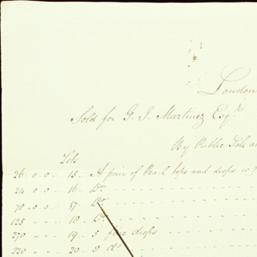 London
Sold for G. J. Martinez Esqre
By Public Sale a
Lots
36 0 0 15 A pair of Pearl tops and drops
24 0 0 16 Do
70 0 0 17 Do
125 18 Do
270 19 5 fine drops
220 20 8 do